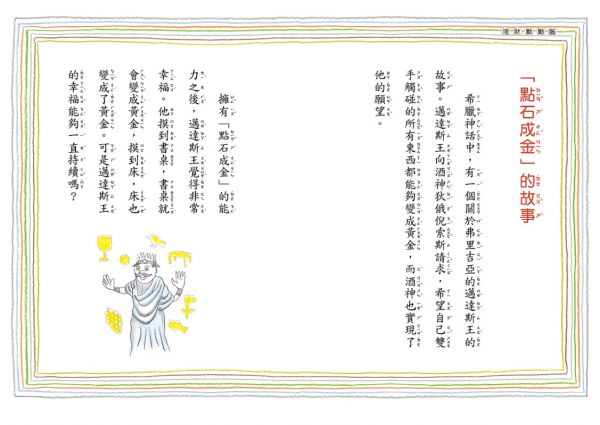 理財動動腦
「點石成金」的故事
希臘神話中，有一個關於弗里吉亞的邁達斯王的
故事。邁達斯王向酒神狄俄倪索斯請求，希望自己雙
手觸碰的所有東西都能夠變成黃金，而酒神也實現了
他的願望。
擁有「點石成金」的能
力之後，邁達斯王覺得非常
幸福。他摸到書桌，書桌就
會變成黃金，摸到床，床也
變成了黃金。可是邁達斯王
的幸福能夠一直持續嗎？